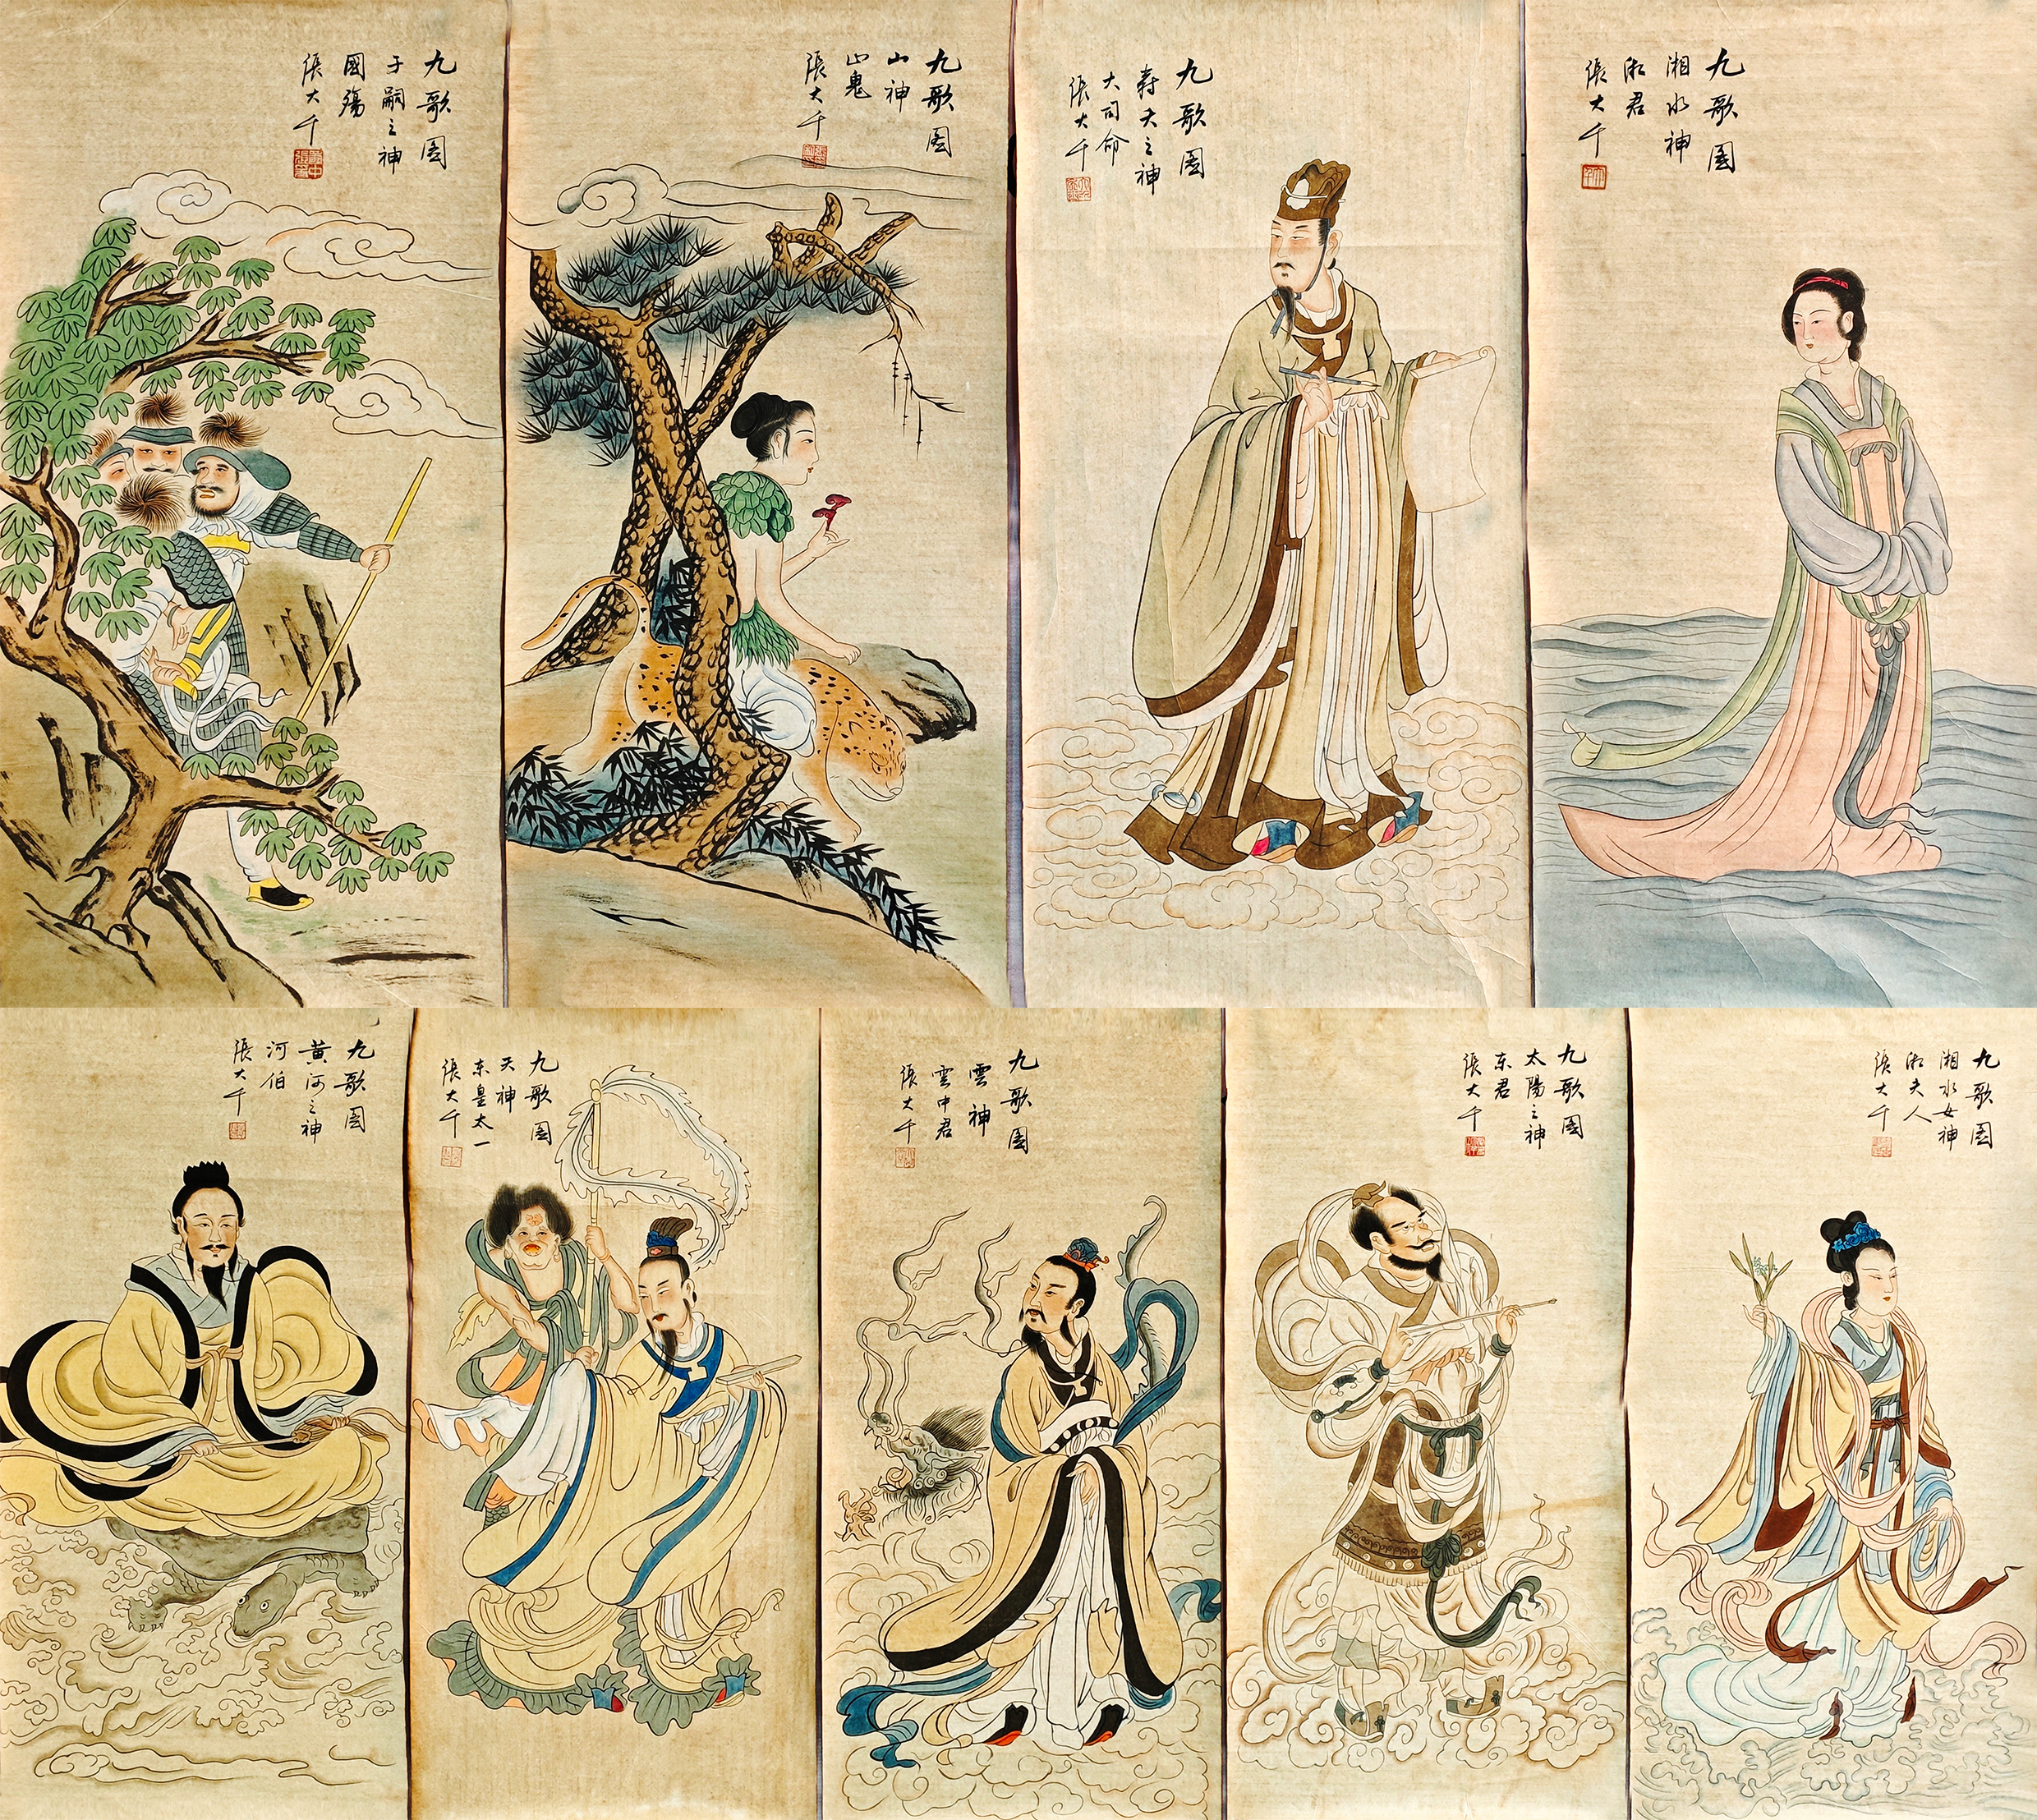 九歌圖
子嗣之神
國殤
張大千
九歌圖
山神
山鬼
張大千
九歌圖
壽夭之神
大司命
張大千
九歌圖
湘水神
湘君
張大千
九歌圖
黄河之神
河伯
張大千
九歌圖
天神
东皇太一
張大千
九歌圖
雲神
雲中君
張大千
九歌圖
太陽之神
东君
張大千
九歌圖
湘水女神
湘夫人
張大千